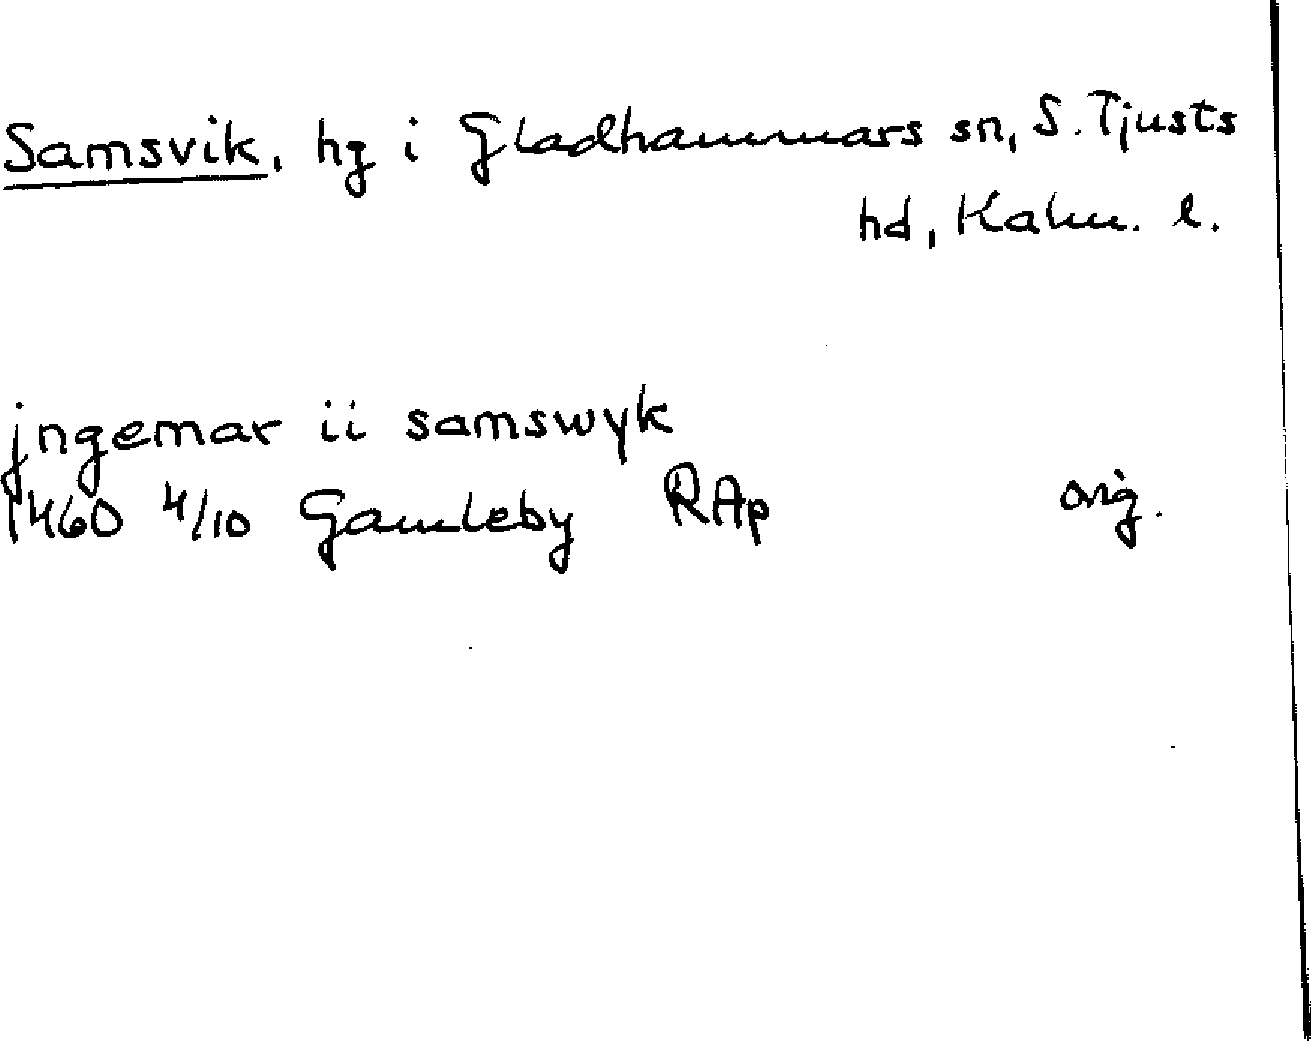 Samsvik, hg i Gladhammars sn, S. Tjusts
hd, Kalm. l.
jngemar ii samswyk
1460 4/10 Gamleby RAp orig.